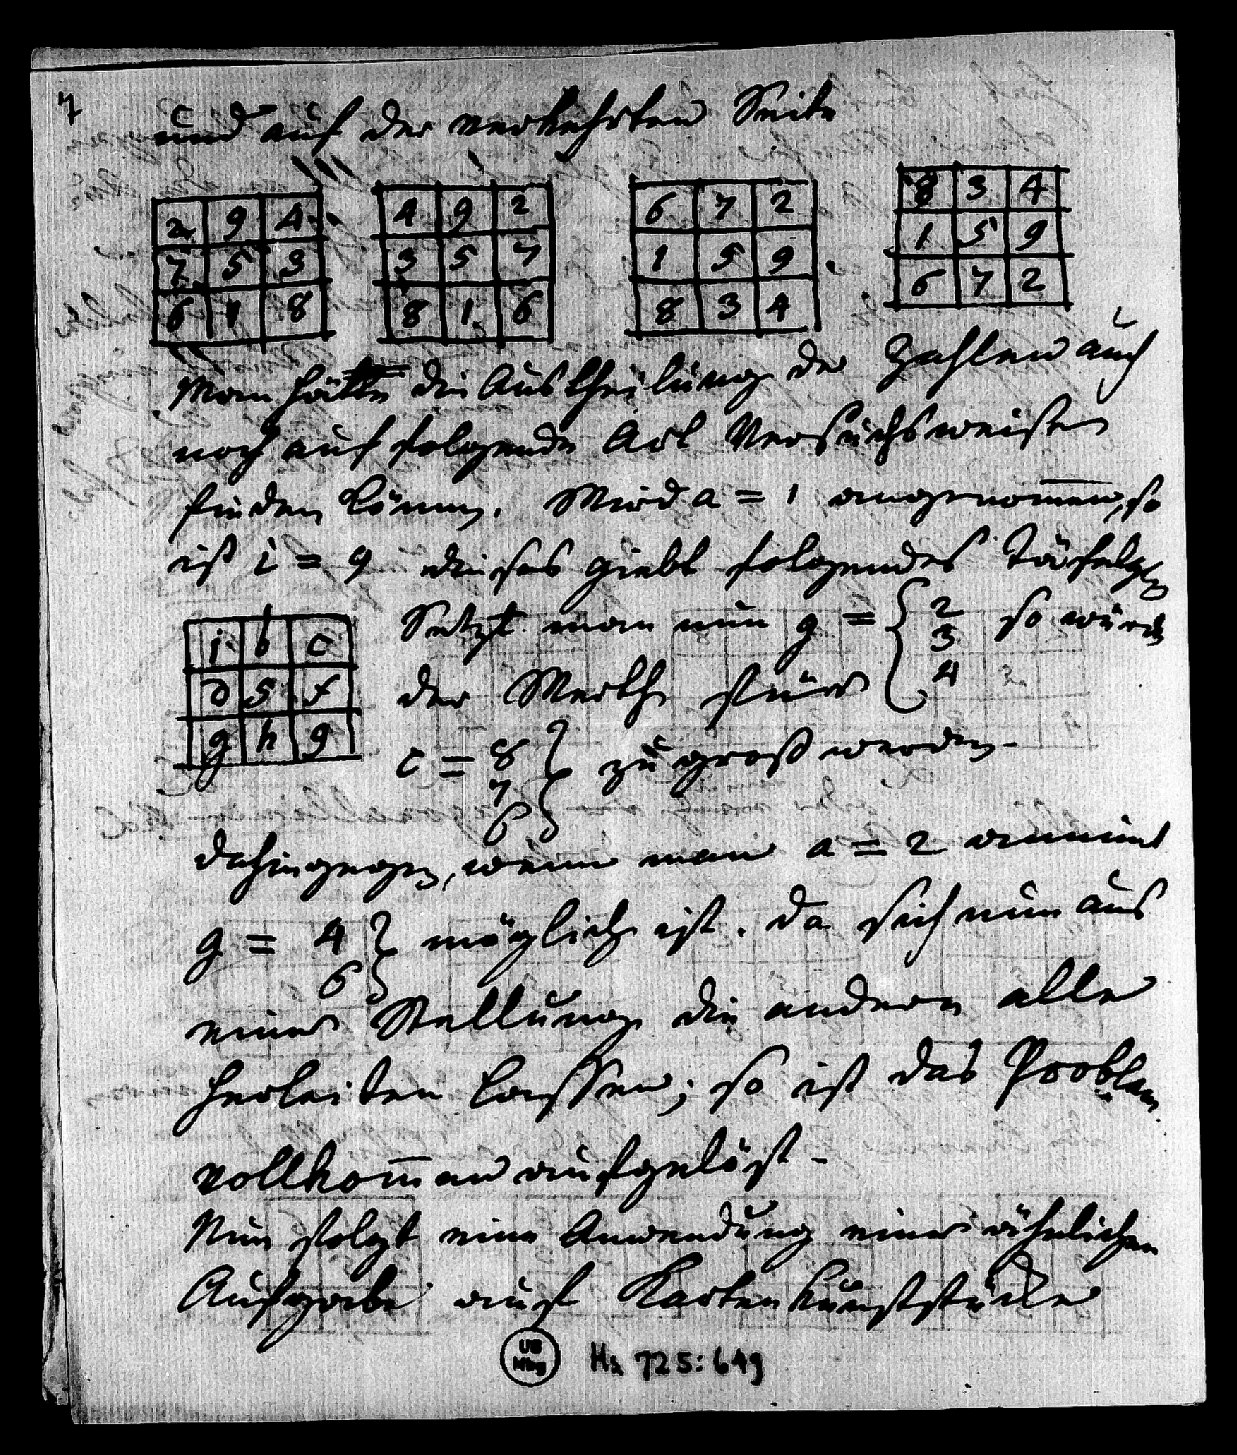 7
und auf der verkehrten Seite
2 9 4 4 9 2 6 7 2 8 3 4
7 5 3 3 5 7 1 5 9 1 5 9
6 1 8 8 1 6 8 3 4 6 7 2
Man hätte die Austheilung der Zahlen auch
noch auf folgende Art Versuchsweise
finden können. Wird a = 1 angenom̅en, so
ist i = 9 dieses giebt folgendes Täfelchen
i b c
d 5 f
g h 9
Setzt man nun g = { 2 3 4 so würde
der Werth für
c = 8 7 6 } zu groß werden.
dahingegen, wenn man a = 2 annimt
g = 4 6 } möglich ist. da sich nun aus
einer Stellung die andern alle
herleiten lassen; so ist das Problem
vollkom̅en aufgelöst.
Nun folgt eine Anwendung einer ähnlichen
Aufgabe auf Kartenkunststücke
UB Mbg Hs 725:649